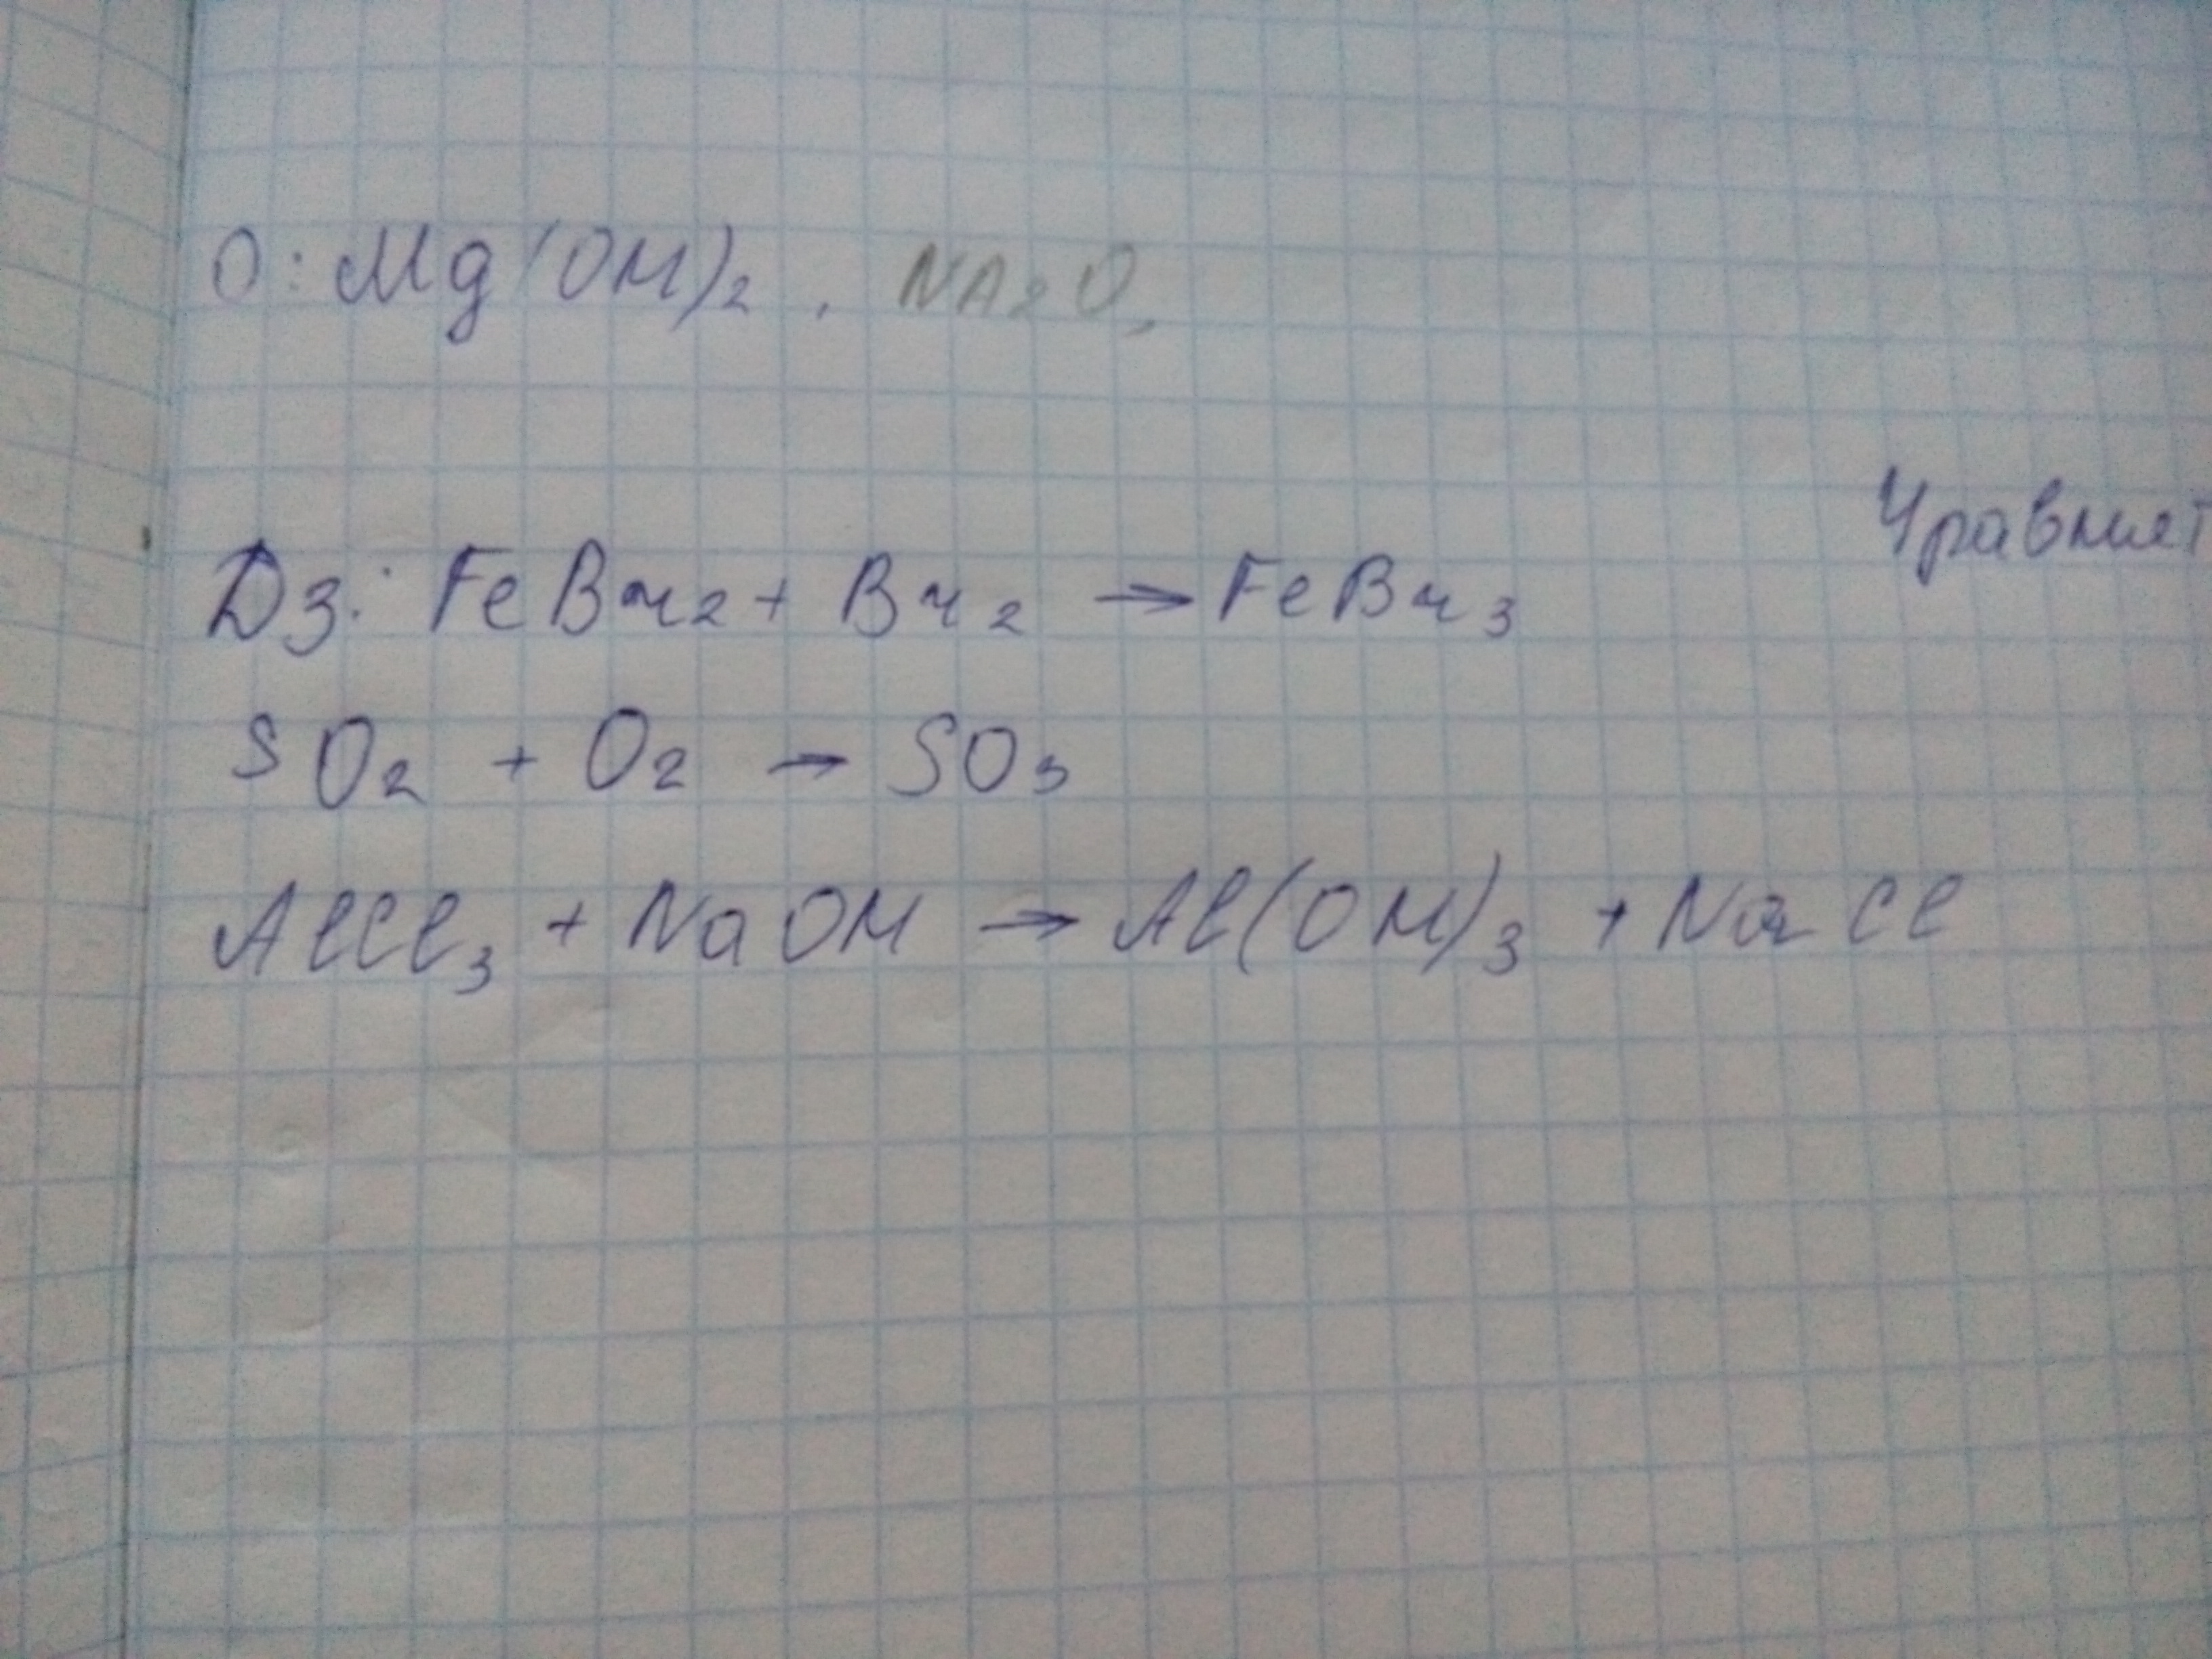 O: Mg(OH)₂, NA₂O,
Уравнит
Дз: FeBr₂ + Br₂ → FeBr₃
SO₂ + O₂ → SO₃
AlCl₃ + NaOH → Al(OH)₃ + NaCl